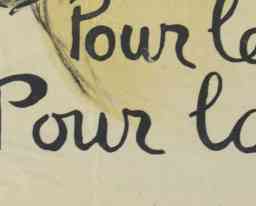 Pour le
Pour la